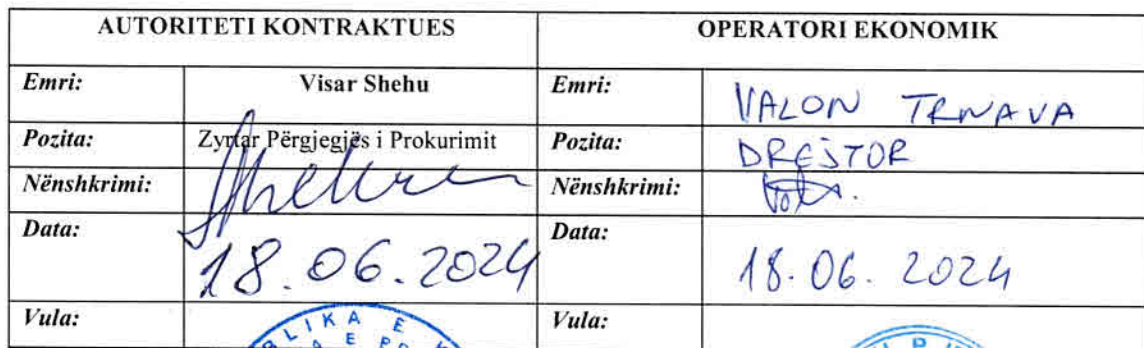 AUTORITETI KONTRAKTUES OPERATORI EKONOMIK
Emri: Visar Shehu Emri: VALON TRNAVA
Pozita: Zyrtar Përgjegjës i Prokurimit Pozita: DREJTOR
Nënshkrimi: Nënshkrimi:
Data: 18.06.2024 Data: 18.06.2024
Vula: Vula: